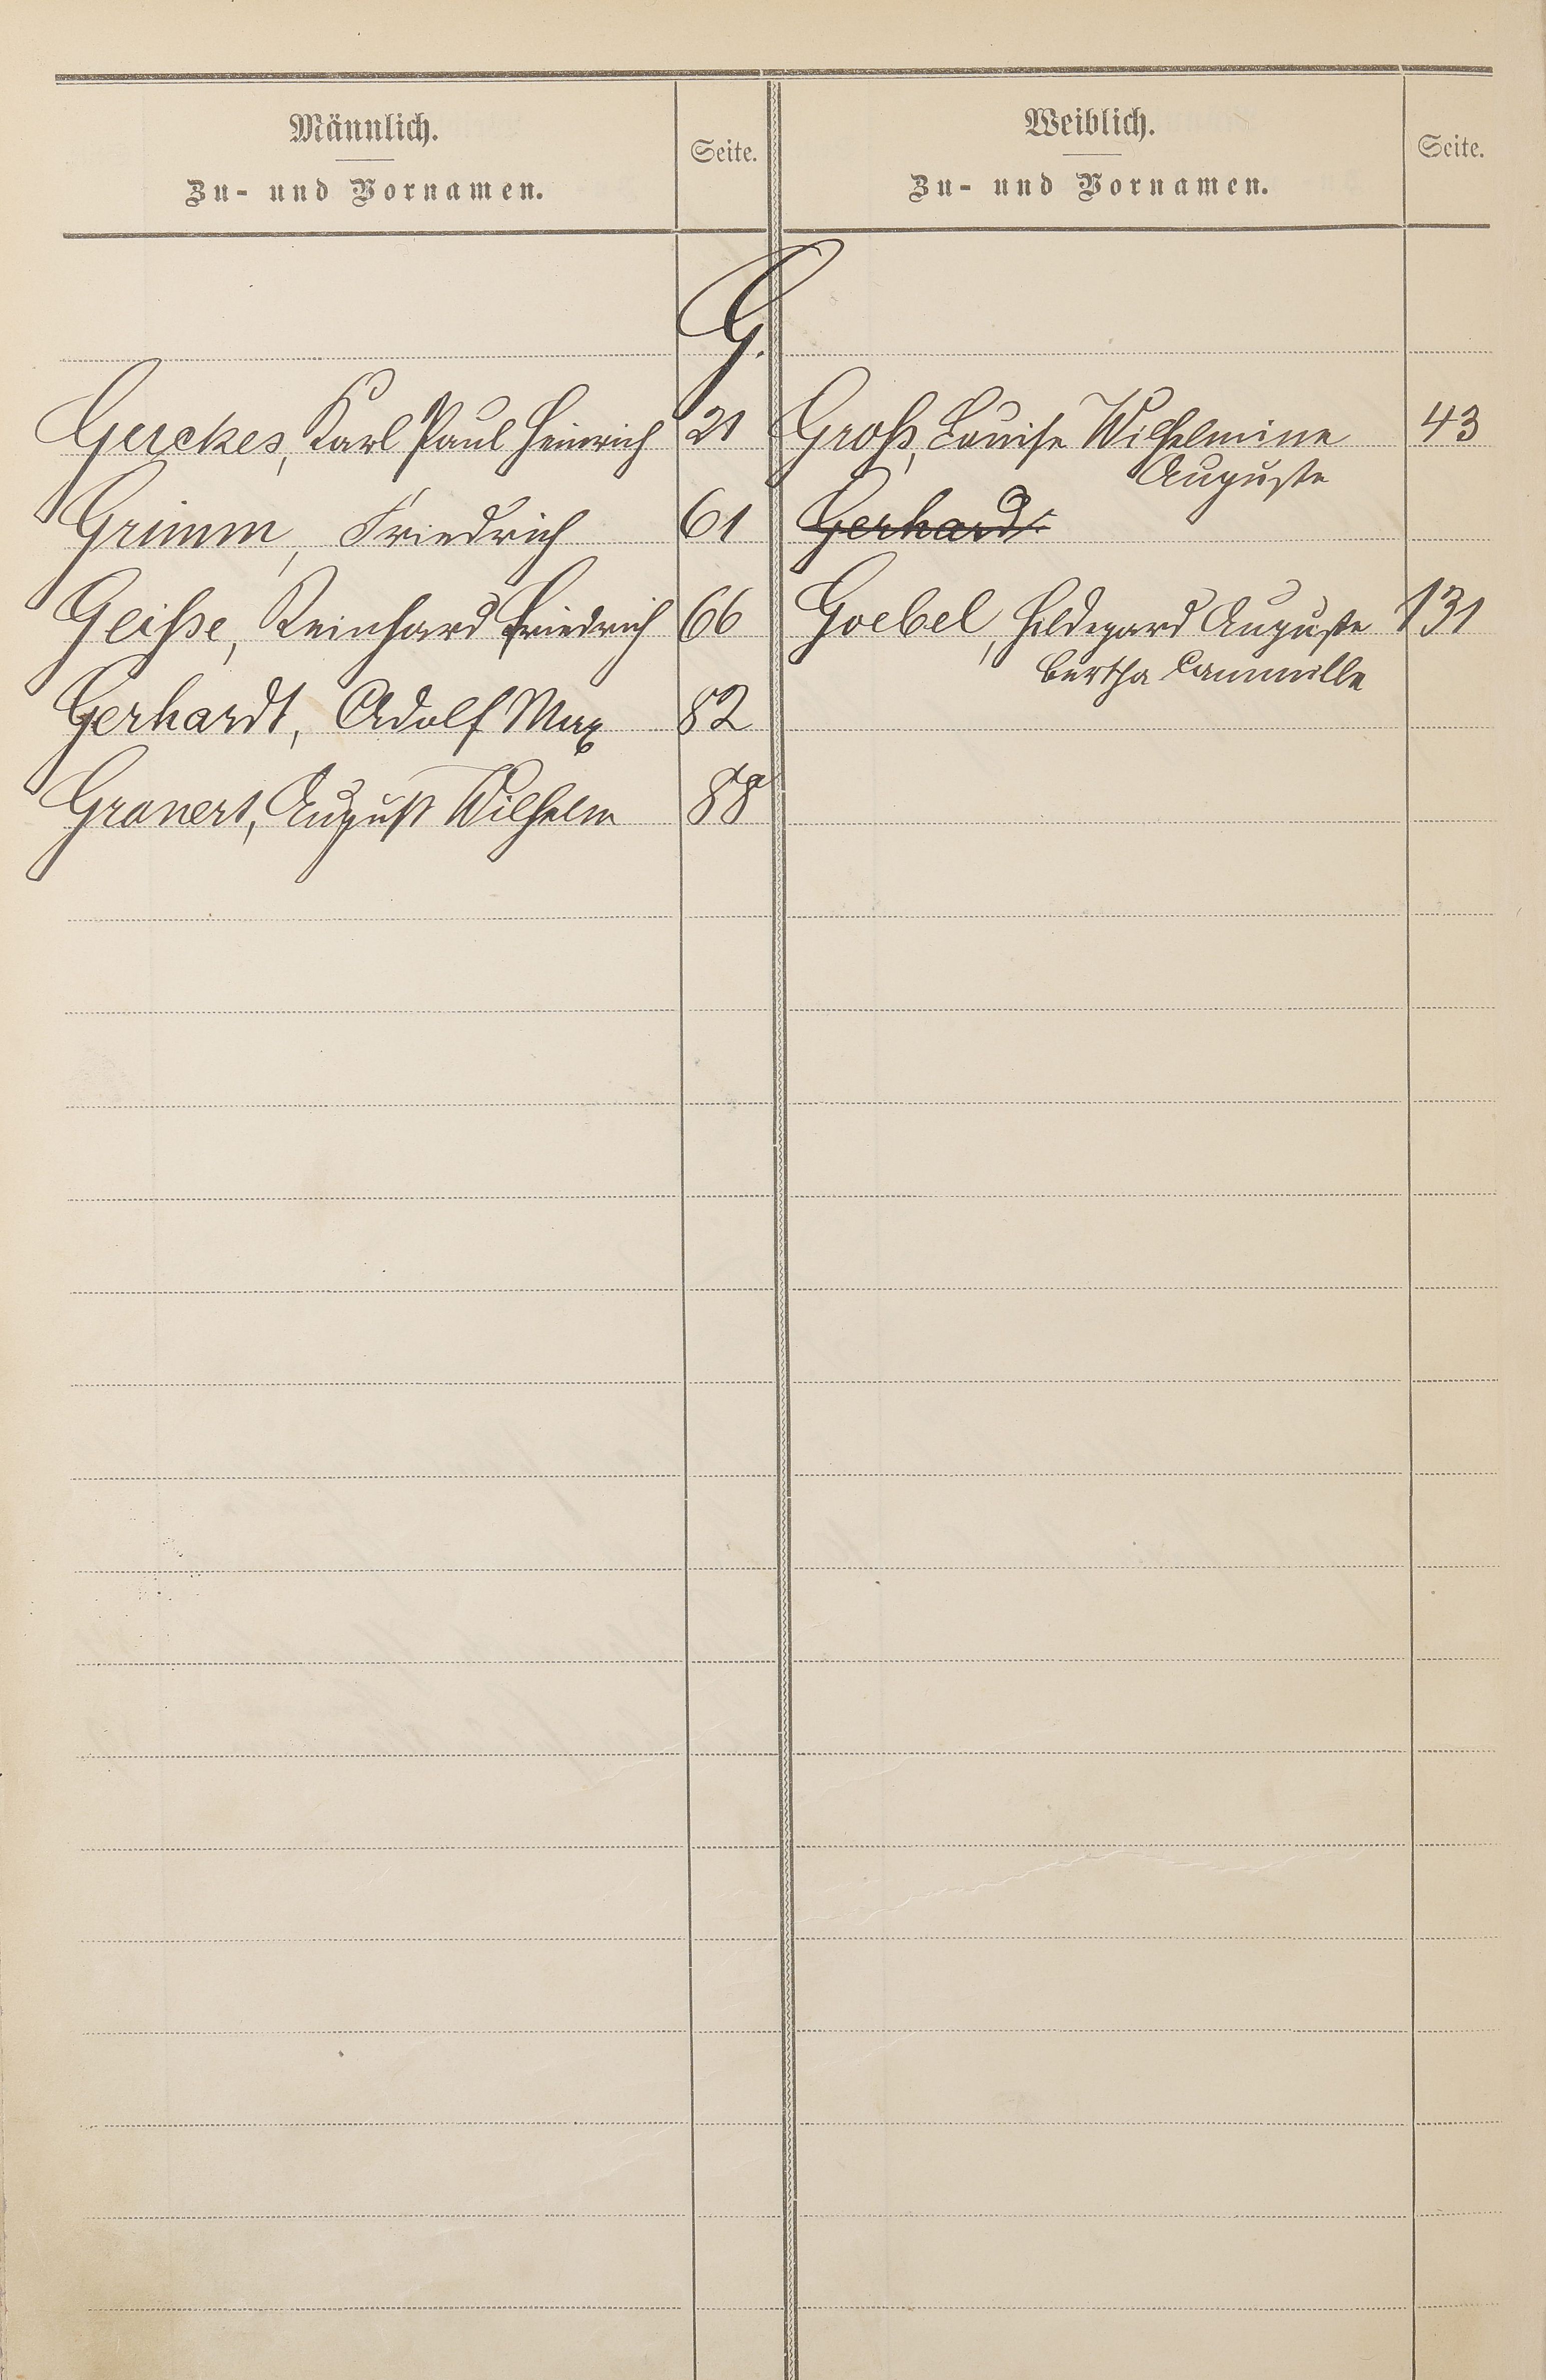 Männlich.
Zu- und Vornamen.
Seite.
Weiblich.
Zu- und Vornamen.
Seite.
G.
Gerckes, Karl Paul Heinrich 21 Groß, Louise Wilhelmine 43
Auguste
Grimm, Friedrich 61 Gerhardt
Geiße, Reinhard Friedrich 66 Goebel, Hildegard Auguste 131
Bertha Cammille
Gerhardt, Adolf Max 82
Granert, August Wilhelm 88